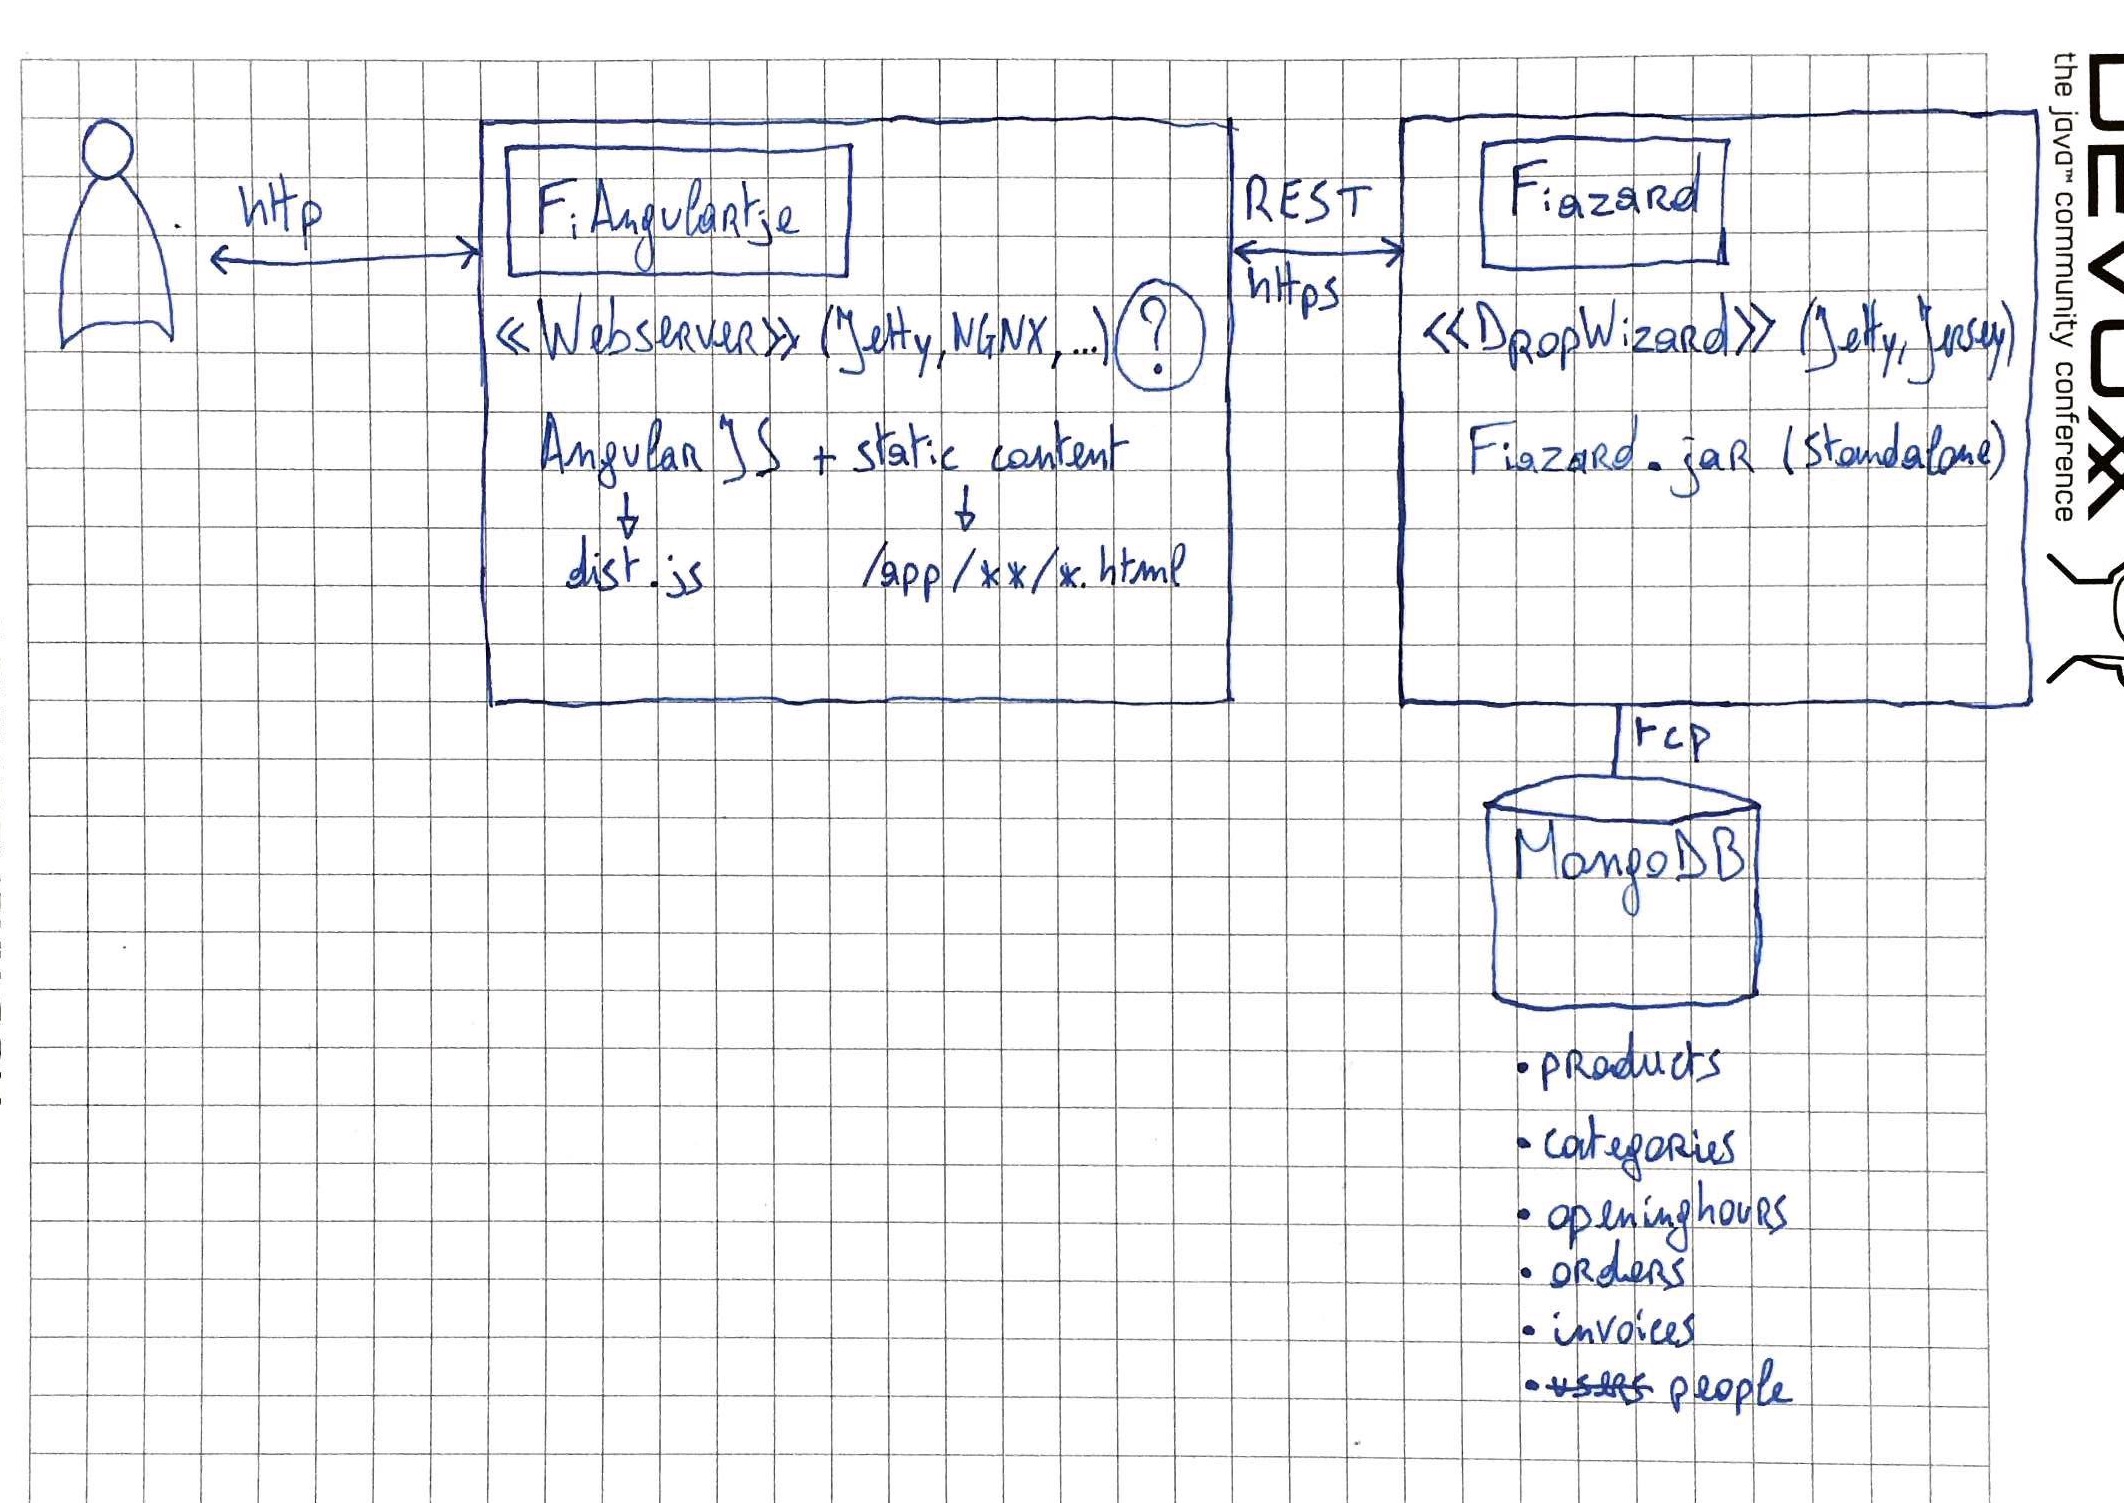 http
FiAngulartje
<<Webserver>> (Jetty, NGNX, ...) ?
Angular JS + static content
dist.js /app/**/*.html
REST
https
Fiazard
<<DropWizard>> (Jetty, Jersey)
Fiazard.jar (Standalone)
tcp
MongoDB
• products
• categories
• openinghours
• orders
• invoices
• users people
DEVOXX
the java™ community conference